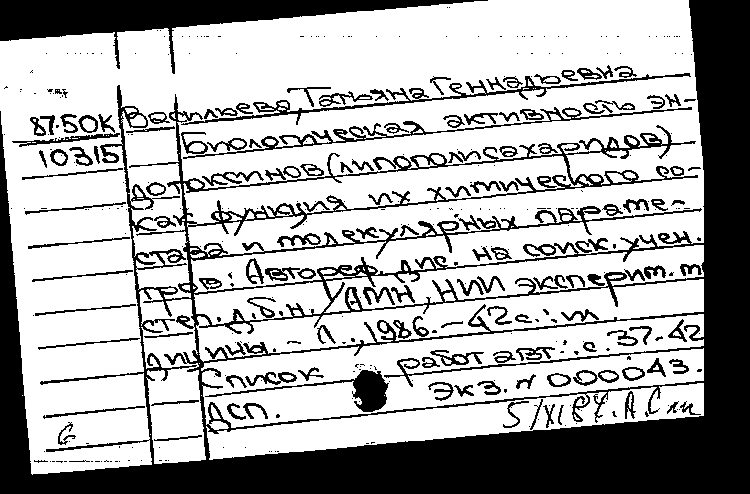 Васильева, Татьяна Геннадьевна.
87.50К
10315
Биологическая активность эн-
дотоксинов (липополисахаридов)
как функция их химического со-
става и молекулярных параме-
тров: Автореф. дис. на соиск. учен.
степ. д.б.н. / АМН, НИИ эксперим. ме
дицины. - Л., 1986. - 42 с.: ил.
Список работ авт.: с. 37-42
ДСП. Экз. № 000043.
5/XI 87.